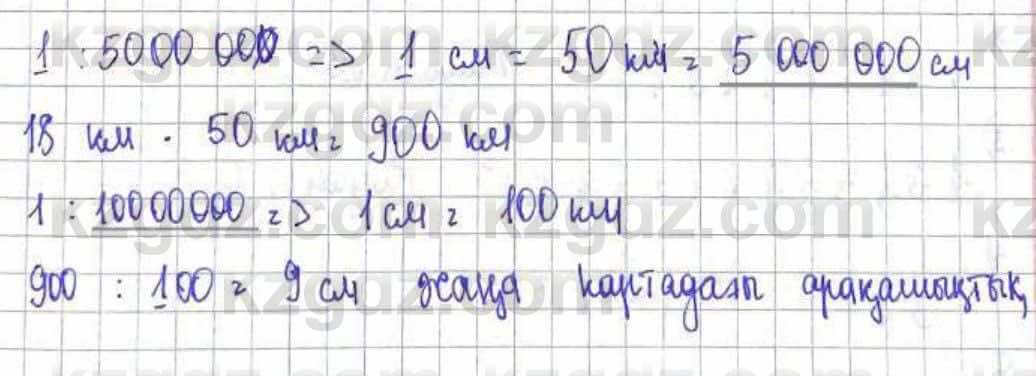 1 : 5000 000 => 1 см = 50 км = 5 000 000 см
18 км · 50 км = 900 км
1 : 10000000 => 1 см = 100 км
900 : 100 = 9 см жаңа картадағы арақашықтық